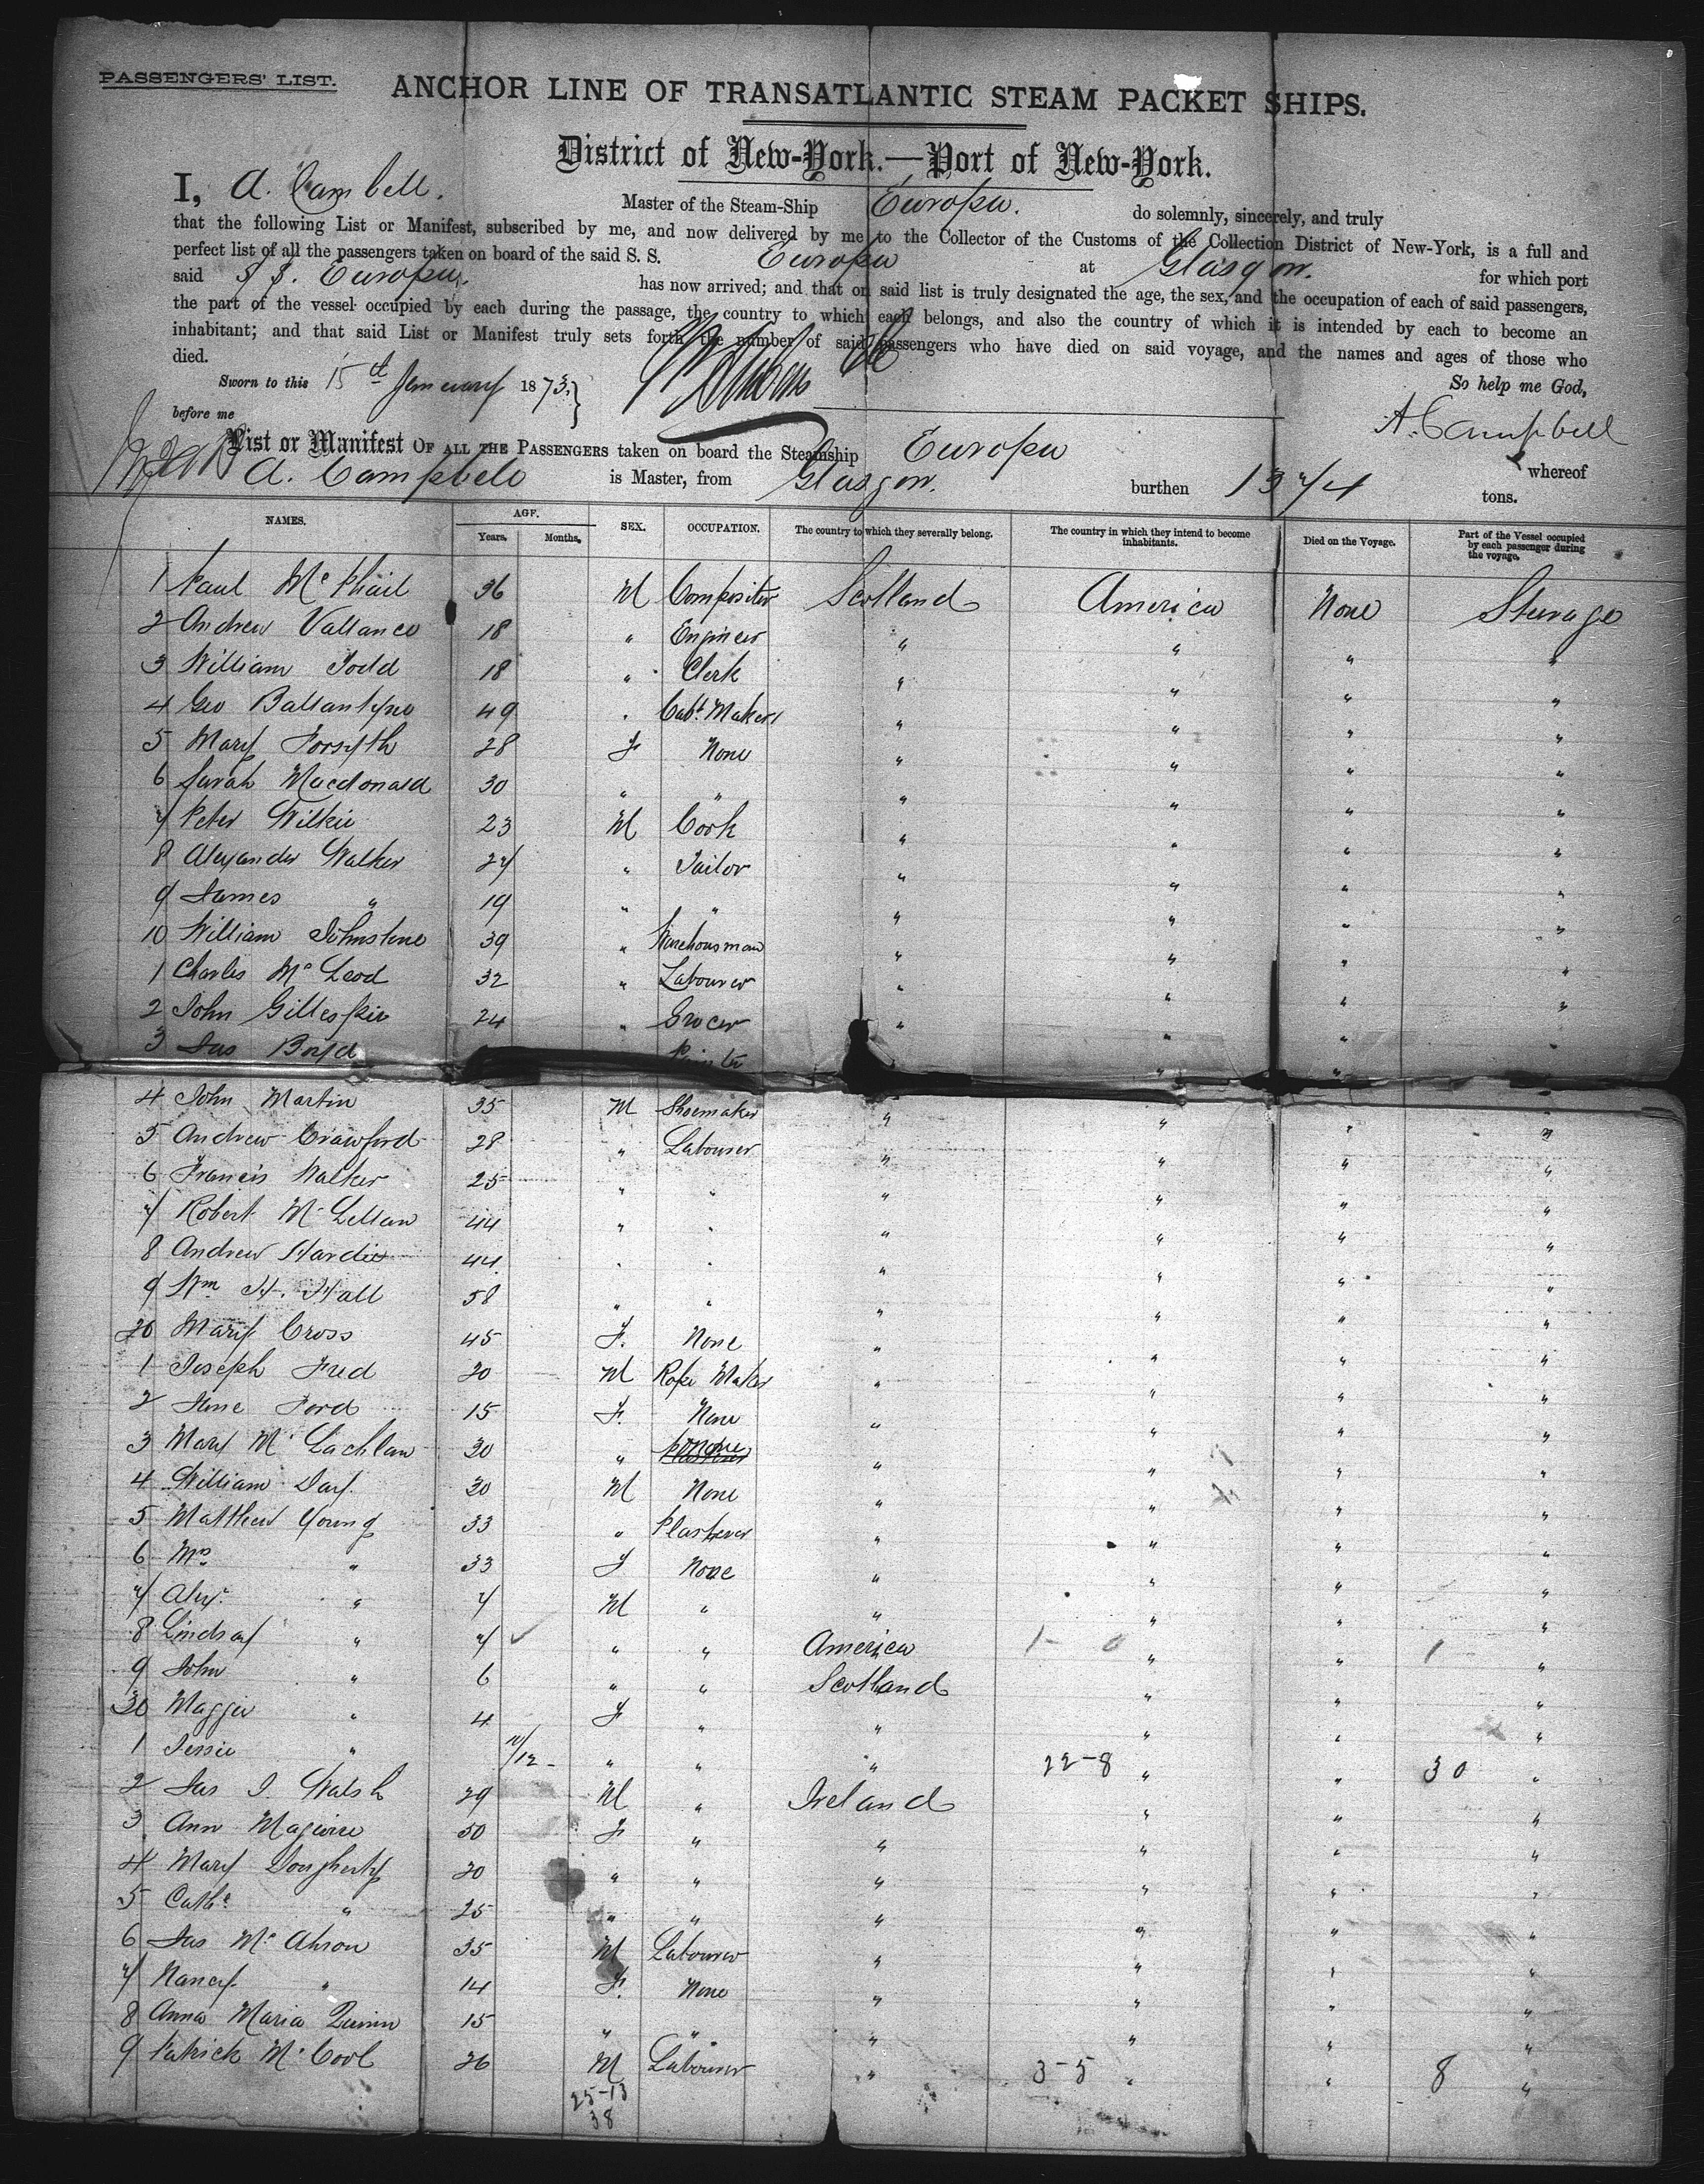 PASSENGERS' LIST.
ANCHOR LINE OF TRANSATLANTIC STEAM PACKET SHIPS.
District of New-York.—Port of New-York.
I, A. Campbell. Master of the Steam-Ship Europa. do solemnly, sincerely, and truly
that the following List or Manifest, subscribed by me, and now delivered by me to the Collector of the Customs of the Collection District of New-York, is a full and
perfect list of all the passengers taken on board of the said S. S. Europa at Glasgow. for which port
said S S. Europa. has now arrived; and that on said list is truly designated the age, the sex, and the occupation of each of said passengers,
the part of the vessel occupied by each during the passage, the country to which each belongs, and also the country of which it is intended by each to become an
inhabitant; and that said List or Manifest truly sets forth the number of said passengers who have died on said voyage, and the names and ages of those who
died.
Sworn to this 15th January 1873, So help me God,
before me A. Campbell
List or Manifest OF ALL THE PASSENGERS taken on board the Steamship Europa whereof
A. Campbell is Master, from Glasgow. burthen 1374 tons.
NAMES. AGE. Years. Months. SEX. OCCUPATION. The country to which they severally belong. The country in which they intend to become inhabitants. Died on the Voyage. Part of the Vessel occupied by each passenger during the voyage.
1 Paul McPhail 36 M Compositor Scotland America None Steerage
2 Andrew Vallance 18 " Engineer " " " "
3 William Todd 18 " Clerk " " " "
4 Geo Ballantyne 49 " Cabt. Maker " " " "
5 Mary Forsyth 28 F None " " " "
6 Sarah Macdonald 30 " " " " " "
7 Peter Wilkie 23 M Cook " " " "
8 Alexander Walker 27 " Tailor " " " "
9 James " 19 " " " " " "
10 William Johnstone 39 " Warehousman " " " "
1 Charles McLeod 32 " Labourer " " " "
2 John Gillespie 24 " Grocer " " " "
3 Jas Boyd " "
4 John Martin 35 M Shoemaker " " " "
5 Andrew Crawford 28 " Labourer " " " "
6 Francis Walker 25 " " " " " "
7 Robert McLellan 44 " " " " " "
8 Andrew Hardie 44 " " " " " "
9 Wm H. Hall 58 " " " " " "
20 Mary Cross 45 F. None " " " "
1 Joseph Fred 20 M Rope Maker " " " "
2 Jane Ford 15 F. None " " " "
3 Mary McLachlan 30 " None " " " "
4 William Day 30 M None " " " "
5 Matthew Young 33 " Plasterer " " " "
6 Mrs " 33 F None " " " "
7 Alexr " 7 M " " " " "
8 Lindsay " 7 " " America 1-0 " " 1 "
9 John " 6 " " Scotland " " "
30 Maggie " 4 F " " " " "
1 Jessie " 10/12 " " " 22-8 " " 30 "
2 Jas J. Walsh 29 M " Ireland " " "
3 Ann Maguire 50 F " " " " "
4 Mary Dougherty 20 " " " " " "
5 Cathe " 25 " " " " " "
6 Jas McAhron 35 M Labourer " " " "
7 Nancy " 14 F. None " " " "
8 Anna Maria Quinn 15 " " " " " "
9 Patrick McCool 26 M Labourer " 3-5 " " 8 "
25-13
38